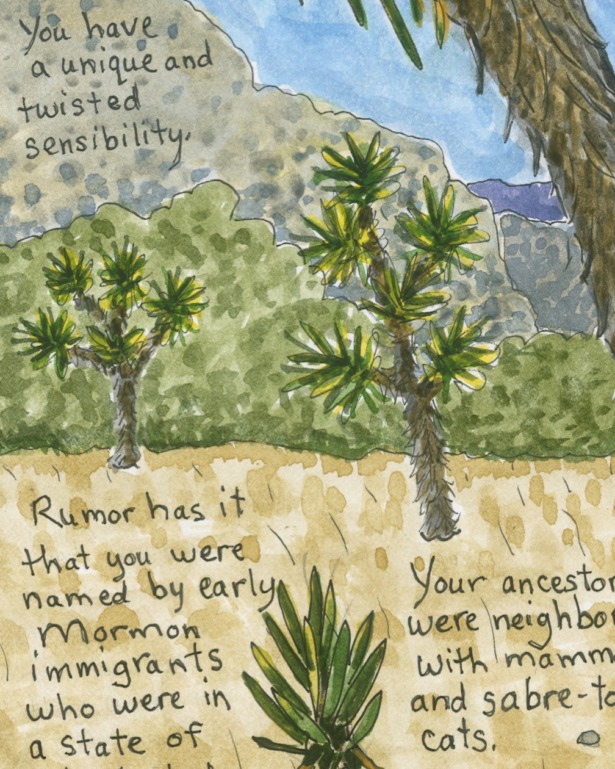 You have
a unique and
twisted
sensibility.
Rumor has it
that you were
named by early
Mormon
immigrants
who were in
a state of
Your ancestor
were neighbo
with mamm
and sabre-to
cats.